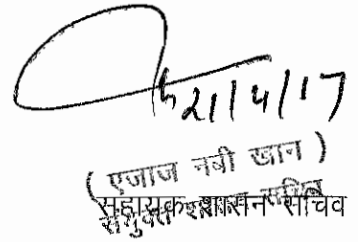 21/4/17
( एजाज नबी खान )
संयुक्त शासन सचिव
सहायक शासन सचिव